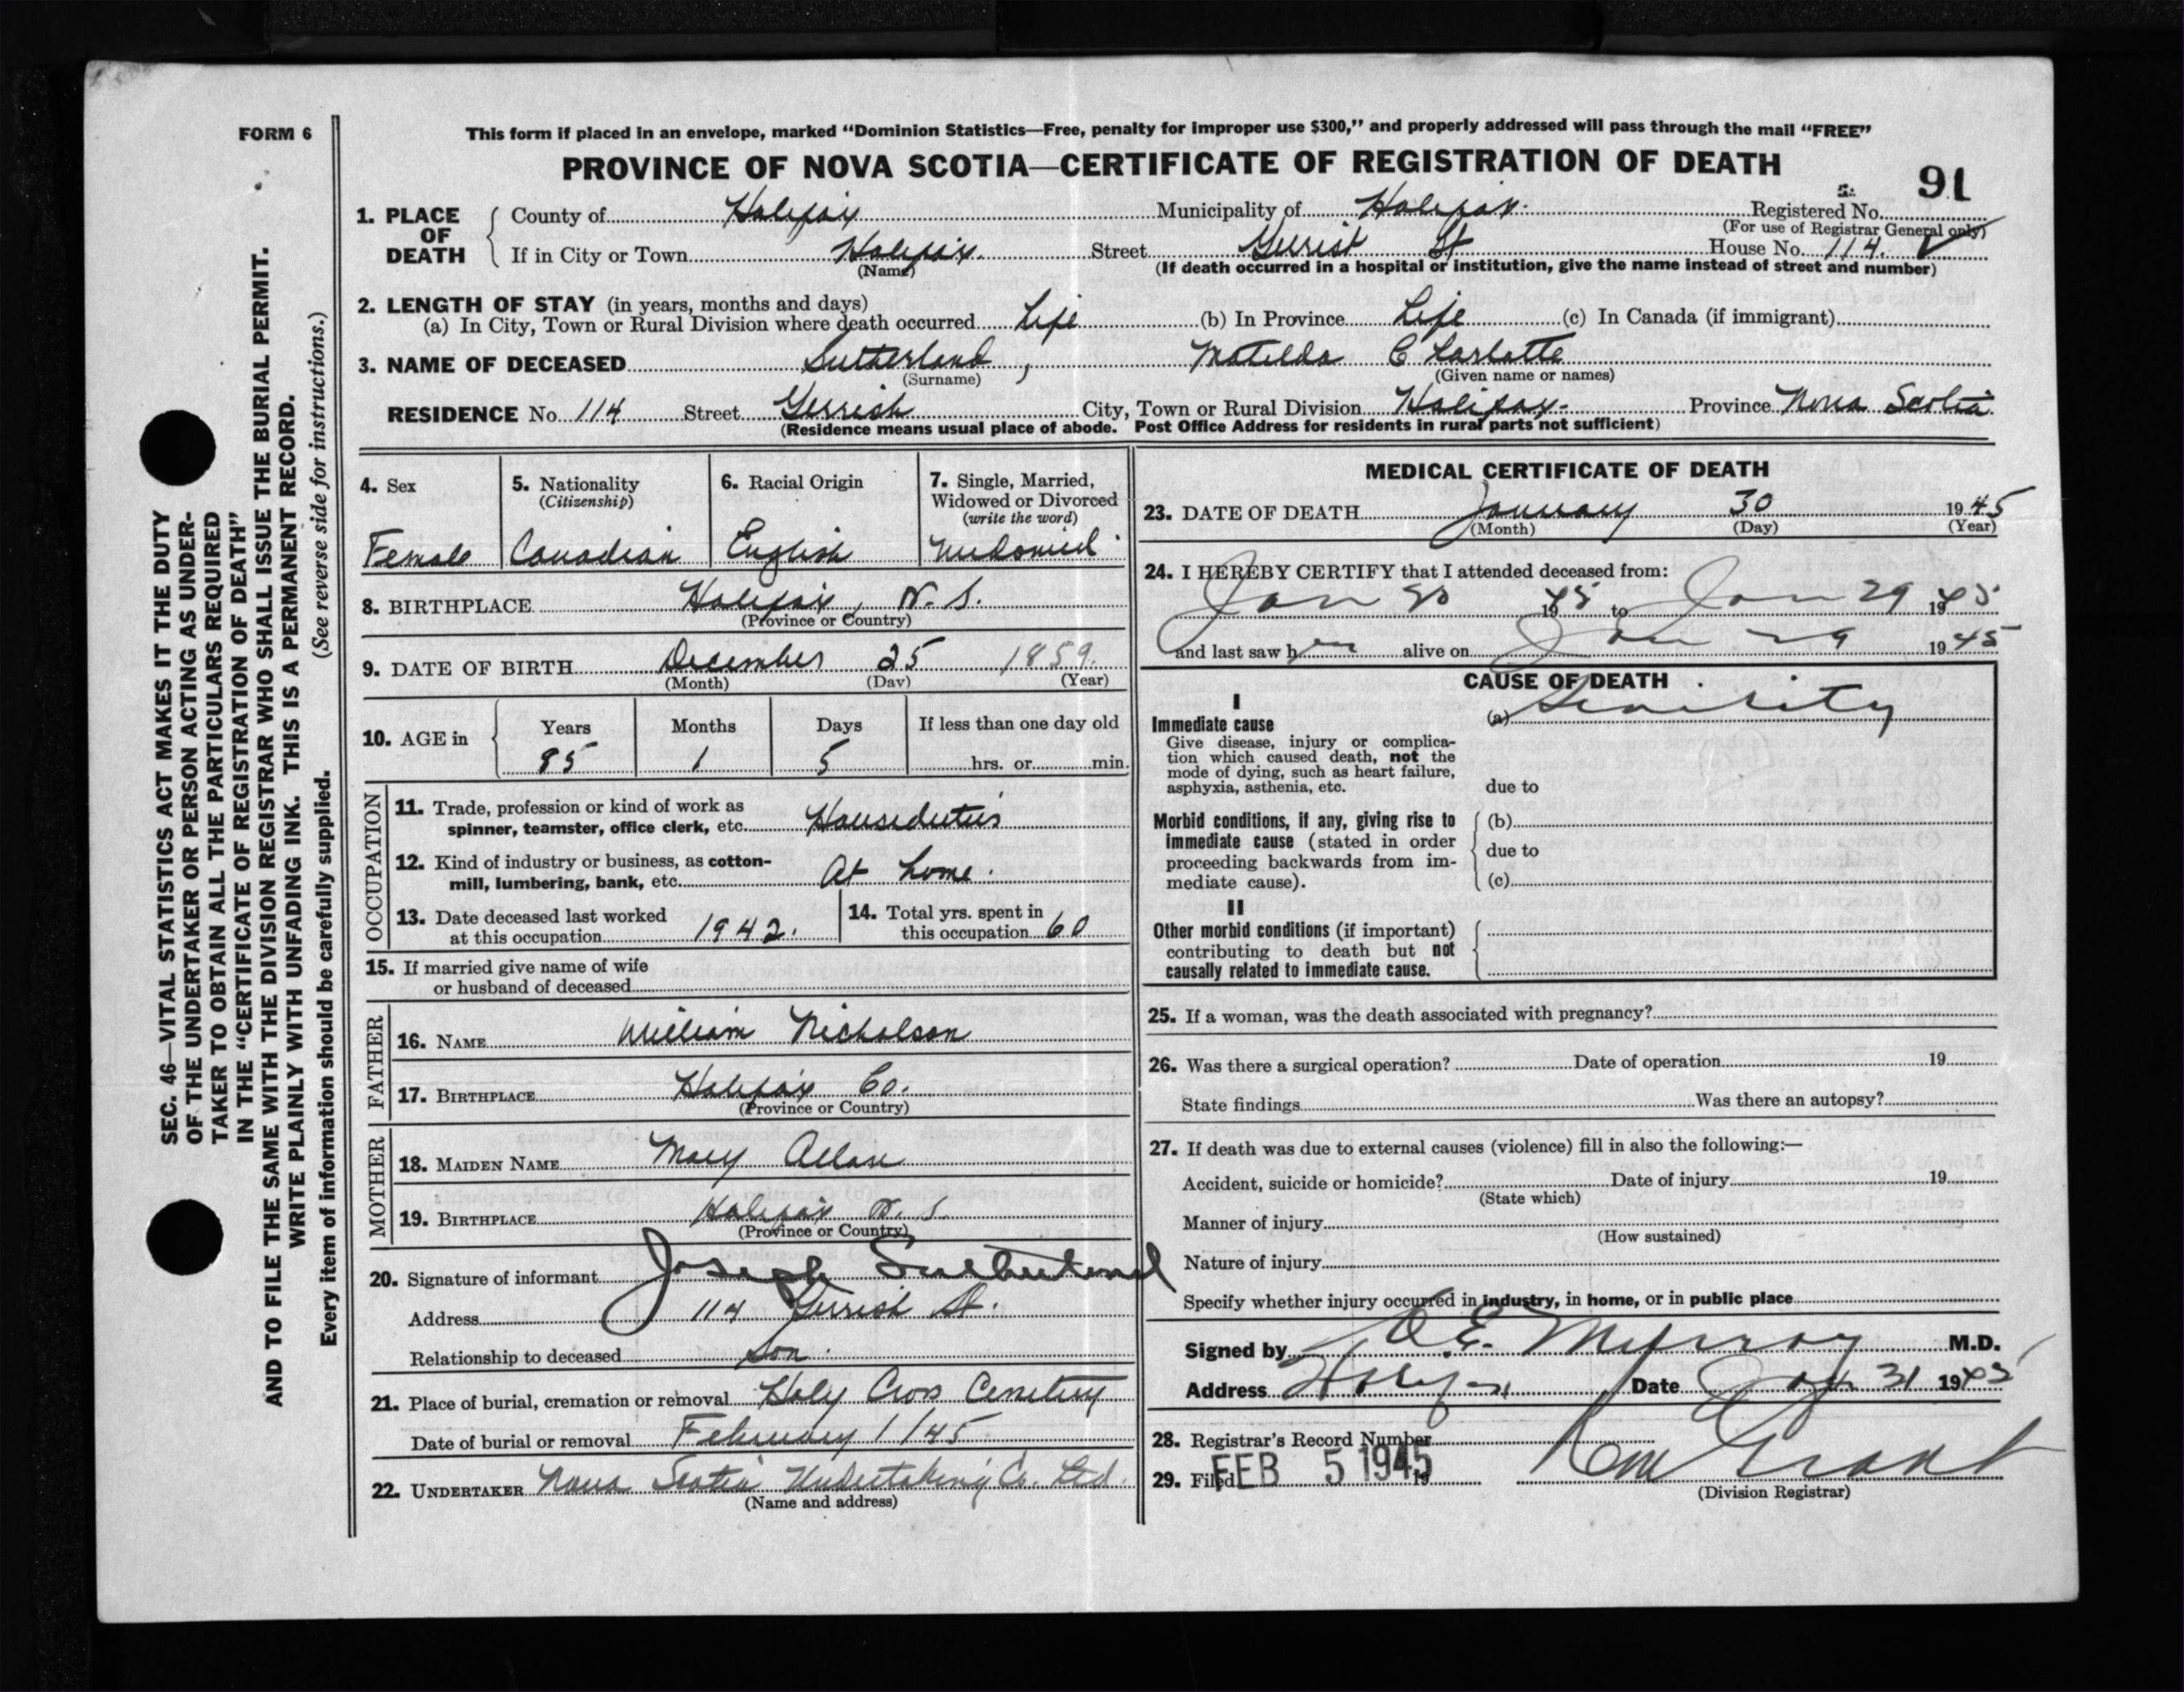 FORM 6
This form if placed in an envelope, marked "Dominion Statistics—Free, penalty for improper use $300," and properly addressed will pass through the mail "FREE"
PROVINCE OF NOVA SCOTIA—CERTIFICATE OF REGISTRATION OF DEATH
91
1. PLACE OF DEATH
County of Halifax Municipality of Halifax. Registered No.
(For use of Registrar General only)
If in City or Town Halifax. Street Gerrish St House No. 114.
(Name) (If death occurred in a hospital or institution, give the name instead of street and number)
2. LENGTH OF STAY (in years, months and days)
(a) In City, Town or Rural Division where death occurred Life (b) In Province Life (c) In Canada (if immigrant)
3. NAME OF DECEASED Sutherland, Matilda Charlotte
(Surname) (Given name or names)
RESIDENCE No. 114 Street Gerrish City, Town or Rural Division Halifax. Province Nova Scotia
(Residence means usual place of abode. Post Office Address for residents in rural parts not sufficient)
4. Sex
Female
5. Nationality
(Citizenship)
Canadian
6. Racial Origin
English
7. Single, Married,
Widowed or Divorced
(write the word)
Widowed
8. BIRTHPLACE Halifax, N.S.
(Province or Country)
9. DATE OF BIRTH December 25 1859.
(Month) (Day) (Year)
10. AGE in Years Months Days If less than one day old
85 1 5 hrs. or min.
OCCUPATION
11. Trade, profession or kind of work as
spinner, teamster, office clerk, etc. Houseduties
12. Kind of industry or business, as cotton-
mill, lumbering, bank, etc. At home.
13. Date deceased last worked
at this occupation 1942.
14. Total yrs. spent in
this occupation 60
15. If married give name of wife
or husband of deceased
FATHER
16. NAME William Nicholson
17. BIRTHPLACE Halifax Co.
(Province or Country)
MOTHER
18. MAIDEN NAME Mary Allan
19. BIRTHPLACE Halifax N.S.
(Province or Country)
20. Signature of informant Joseph Sutherland
Address 114 Gerrish St.
Relationship to deceased Son.
21. Place of burial, cremation or removal Holy Cross Cemetery
Date of burial or removal February 1/45
22. UNDERTAKER Nova Scotia Undertaking Co. Ltd.
(Name and address)
MEDICAL CERTIFICATE OF DEATH
23. DATE OF DEATH January 30 1945
(Month) (Day) (Year)
24. I HEREBY CERTIFY that I attended deceased from:
Jan 1945 to Jan 29 1945
and last saw her alive on Jan 29 1945
CAUSE OF DEATH
I
Immediate cause
Give disease, injury or complica-
tion which caused death, not the
mode of dying, such as heart failure,
asphyxia, asthenia, etc.
(a) Senility
due to
Morbid conditions, if any, giving rise to
immediate cause (stated in order
proceeding backwards from im-
mediate cause).
(b)
due to
(c)
II
Other morbid conditions (if important)
contributing to death but not
causally related to immediate cause.
25. If a woman, was the death associated with pregnancy?
26. Was there a surgical operation? Date of operation 19
State findings Was there an autopsy?
27. If death was due to external causes (violence) fill in also the following:—
Accident, suicide or homicide? Date of injury 19
(State which)
Manner of injury
(How sustained)
Nature of injury
Specify whether injury occurred in industry, in home, or in public place
Signed by M.D.
Address Halifax Date Jan 31 1945
28. Registrar's Record Number
29. Filed FEB 5 1945 19
Grant
(Division Registrar)
SEC. 46—VITAL STATISTICS ACT MAKES IT THE DUTY
OF THE UNDERTAKER OR PERSON ACTING AS UNDER-
TAKER TO OBTAIN ALL THE PARTICULARS REQUIRED
IN THE "CERTIFICATE OF REGISTRATION OF DEATH"
AND TO FILE THE SAME WITH THE DIVISION REGISTRAR WHO SHALL ISSUE THE BURIAL PERMIT.
WRITE PLAINLY WITH UNFADING INK. THIS IS A PERMANENT RECORD.
Every item of information should be carefully supplied. (See reverse side for instructions.)